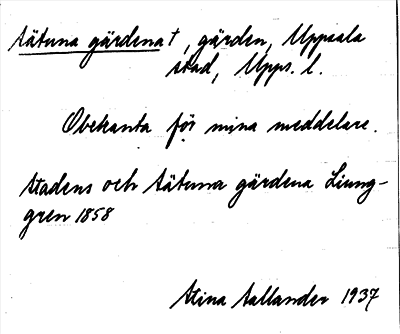 Sätuna gärdena†, gärden, Uppsala
stad, Upps. l.
Obekanta för mina meddelare.
Stadens och Sätuna gärdena Liung-
gren 1858
Stina Sallander 1937